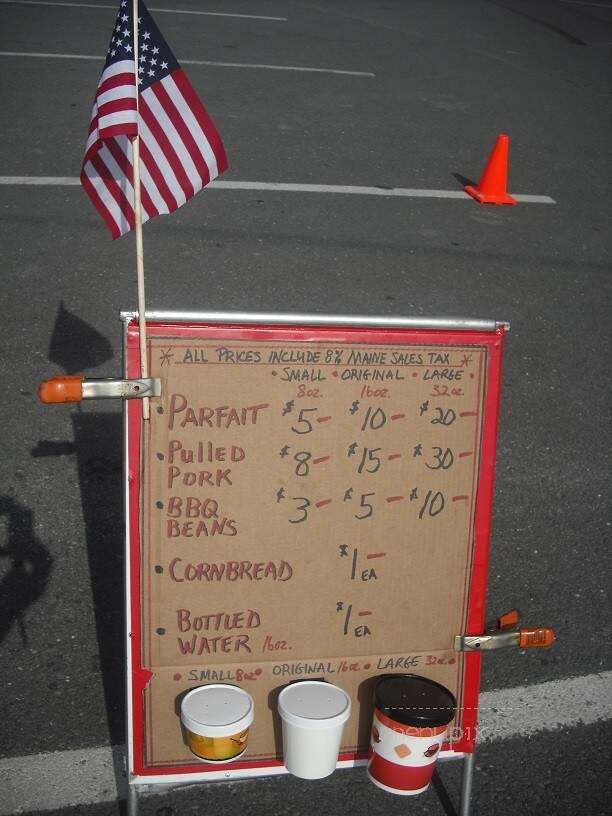 * ALL PRICES INCLUDE 8% MAINE SALES TAX *
• SMALL • ORIGINAL • LARGE •
8oz. 16oz. 32oz.
• PARFAIT $5- $10- $20-
• PULLED PORK $8- $15- $30-
• BBQ BEANS $3- $5- $10-
• CORNBREAD $1- EA
• BOTTLED WATER 16oz. $1- EA
• SMALL 8oz • ORIGINAL 16oz • LARGE 32oz •
menupix